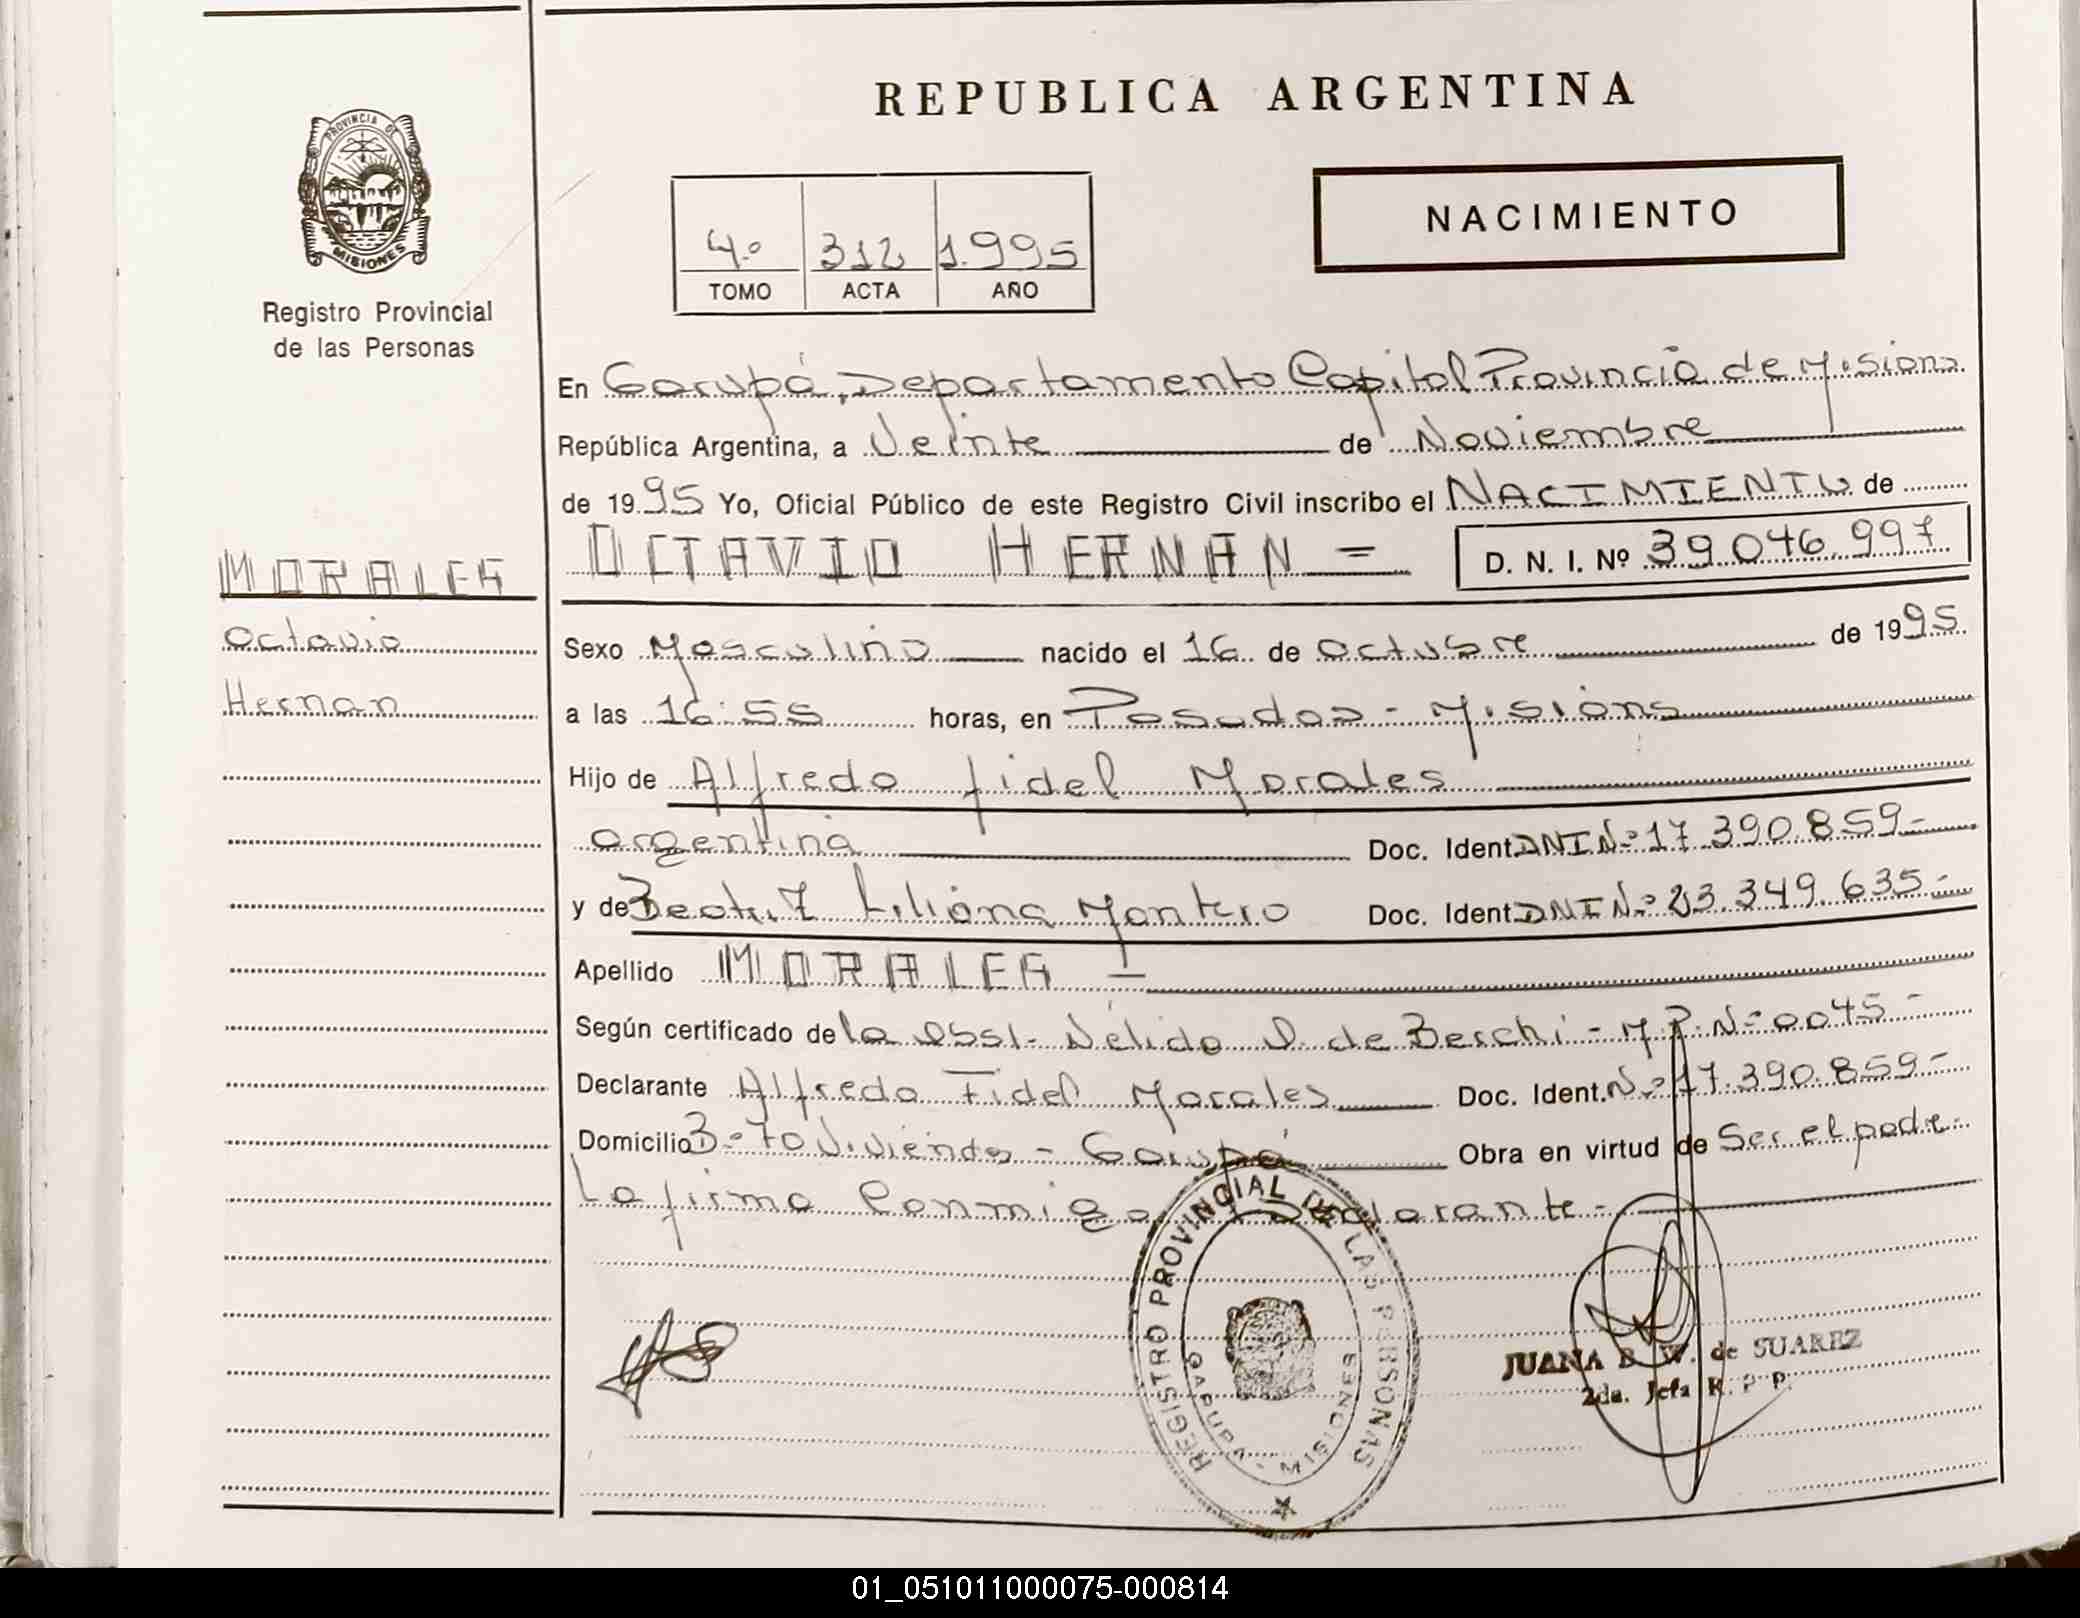 REPUBLICA ARGENTINA
PROVINCIA DE
MISIONES
Registro Provincial
de las Personas
NACIMIENTO
4º 312 1.995
TOMO ACTA AÑO
En Garupá, Departamento Capital Provincia de Misiones
República Argentina, a Veinte de Noviembre
de 1995 Yo, Oficial Público de este Registro Civil inscribo el NACIMIENTO de
OCTAVIO HERNAN = D. N. I. Nº 39.046.997
MORALES
Octavio
Hernan
Sexo Masculino nacido el 16 de Octubre de 1995
a las 16:55 horas, en Posadas - Misiones
Hijo de Alfredo Fidel Morales
argentina Doc. Ident. DNI Nº 17.390.859-
y de Beatriz Liliana Montero Doc. Ident. DNI Nº 23.349.635-
Apellido MORALES -
Según certificado de la Obst. Nélida D. de Berchi - M.P. Nº 0045 -
Declarante Alfredo Fidel Morales Doc. Ident. Nº 17.390.859-
Domicilio Bº 70 Viviendas - Garupá Obra en virtud de Ser el padre-
La firma Conmigo Declarante -
REGISTRO PROVINCIAL DE LAS PERSONAS
GARUPA - MISIONES
JUANA B. W. de SUAREZ
2da. Jefa R. P. P.
01_051011000075-000814